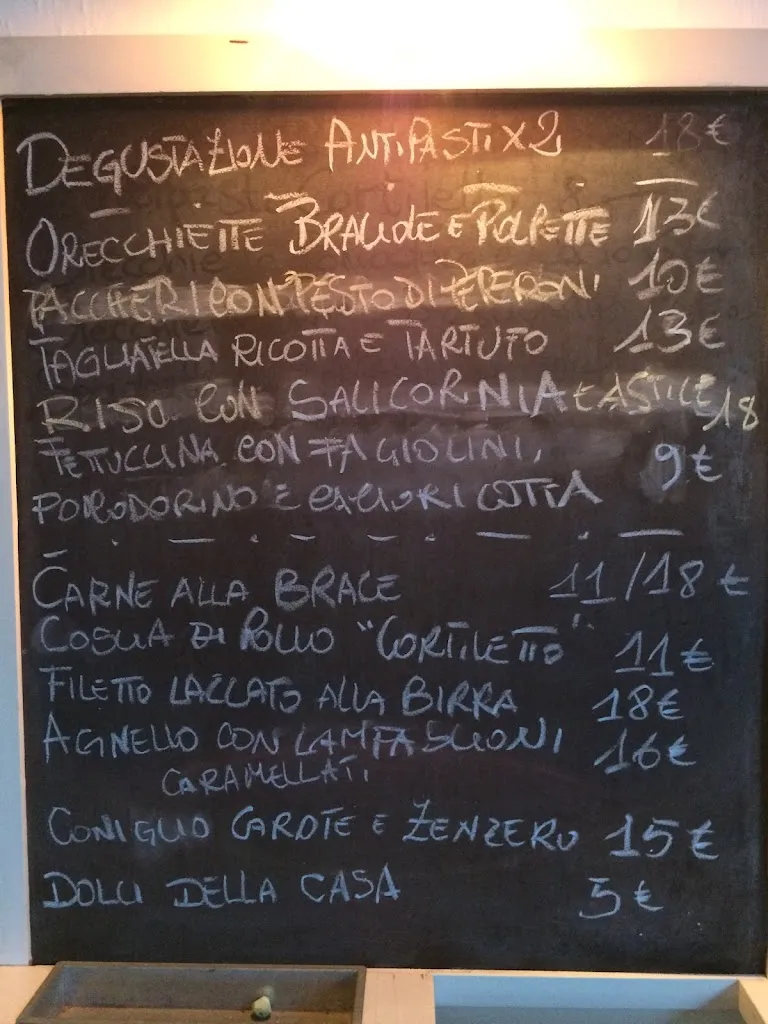 DEGUSTAZIONE ANTIPASTI X 2 18€
ORECCHIETTE BRACIOLE E POLPETTE 13€
PACCHERI CON PESTO DI PEPERONI 10€
TAGLIATELLA RICOTTA E TARTUFO 13€
RISO CON SALICORNIA E ASTICE 18
FETTUCCINA CON FAGIOLINI, 9€
POMODORINO E CACIORICOTTA
CARNE ALLA BRACE 11/18 €
COSCIA DI POLLO "CORTILETTO" 11€
FILETTO LACCATO ALLA BIRRA 18€
AGNELLO CON LAMPASCIONI 16€
CARAMELLATI
CONIGLIO CAROTE E ZENZERO 15€
DOLCI DELLA CASA 5€